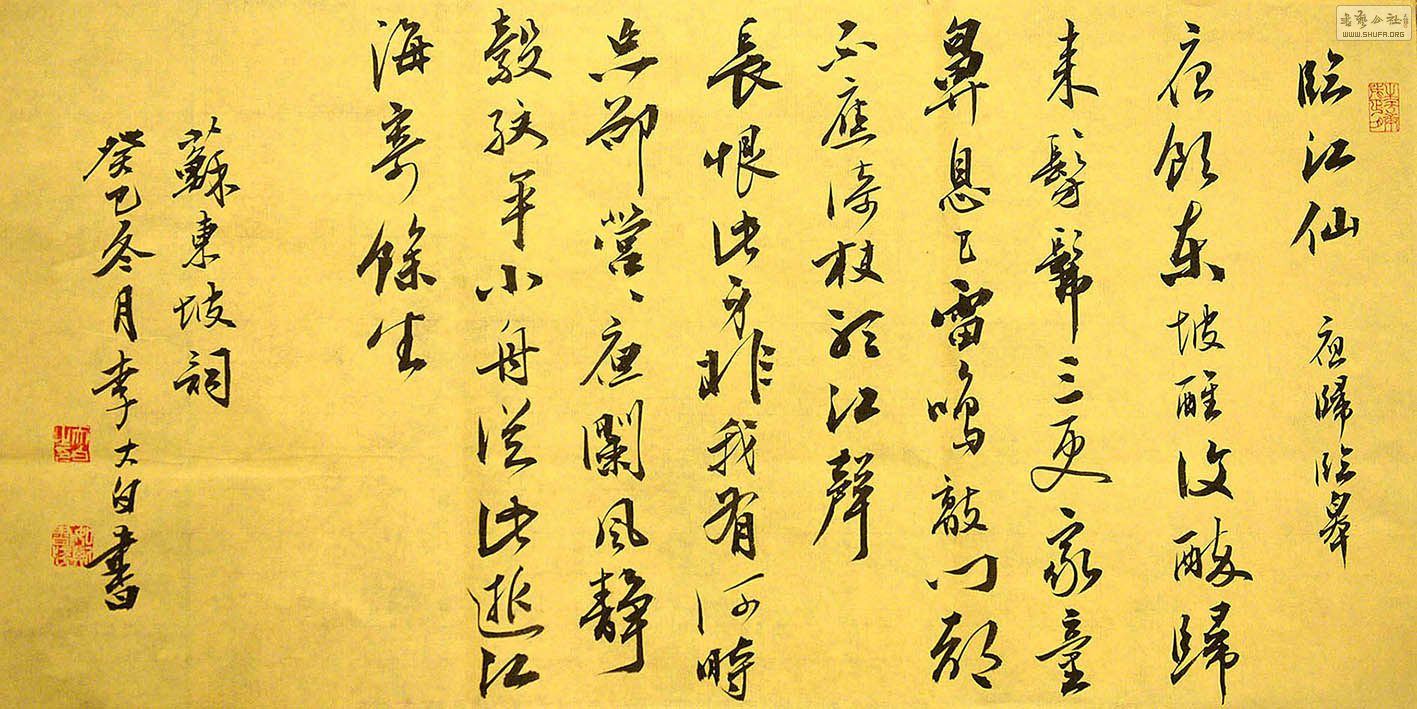 臨江仙　夜歸臨皋
夜飲東坡醒復醉歸
来髣髴三更家童
鼻息已雷鳴敲門都
不應倚杖聽江聲
長恨此身非我有何時
忘卻營〻夜闌風靜
縠紋平小舟從此逝江
海寄餘生
蘇東坡詞
癸巳冬月李大白書
書藝公社
WWW.SHUFA.ORG